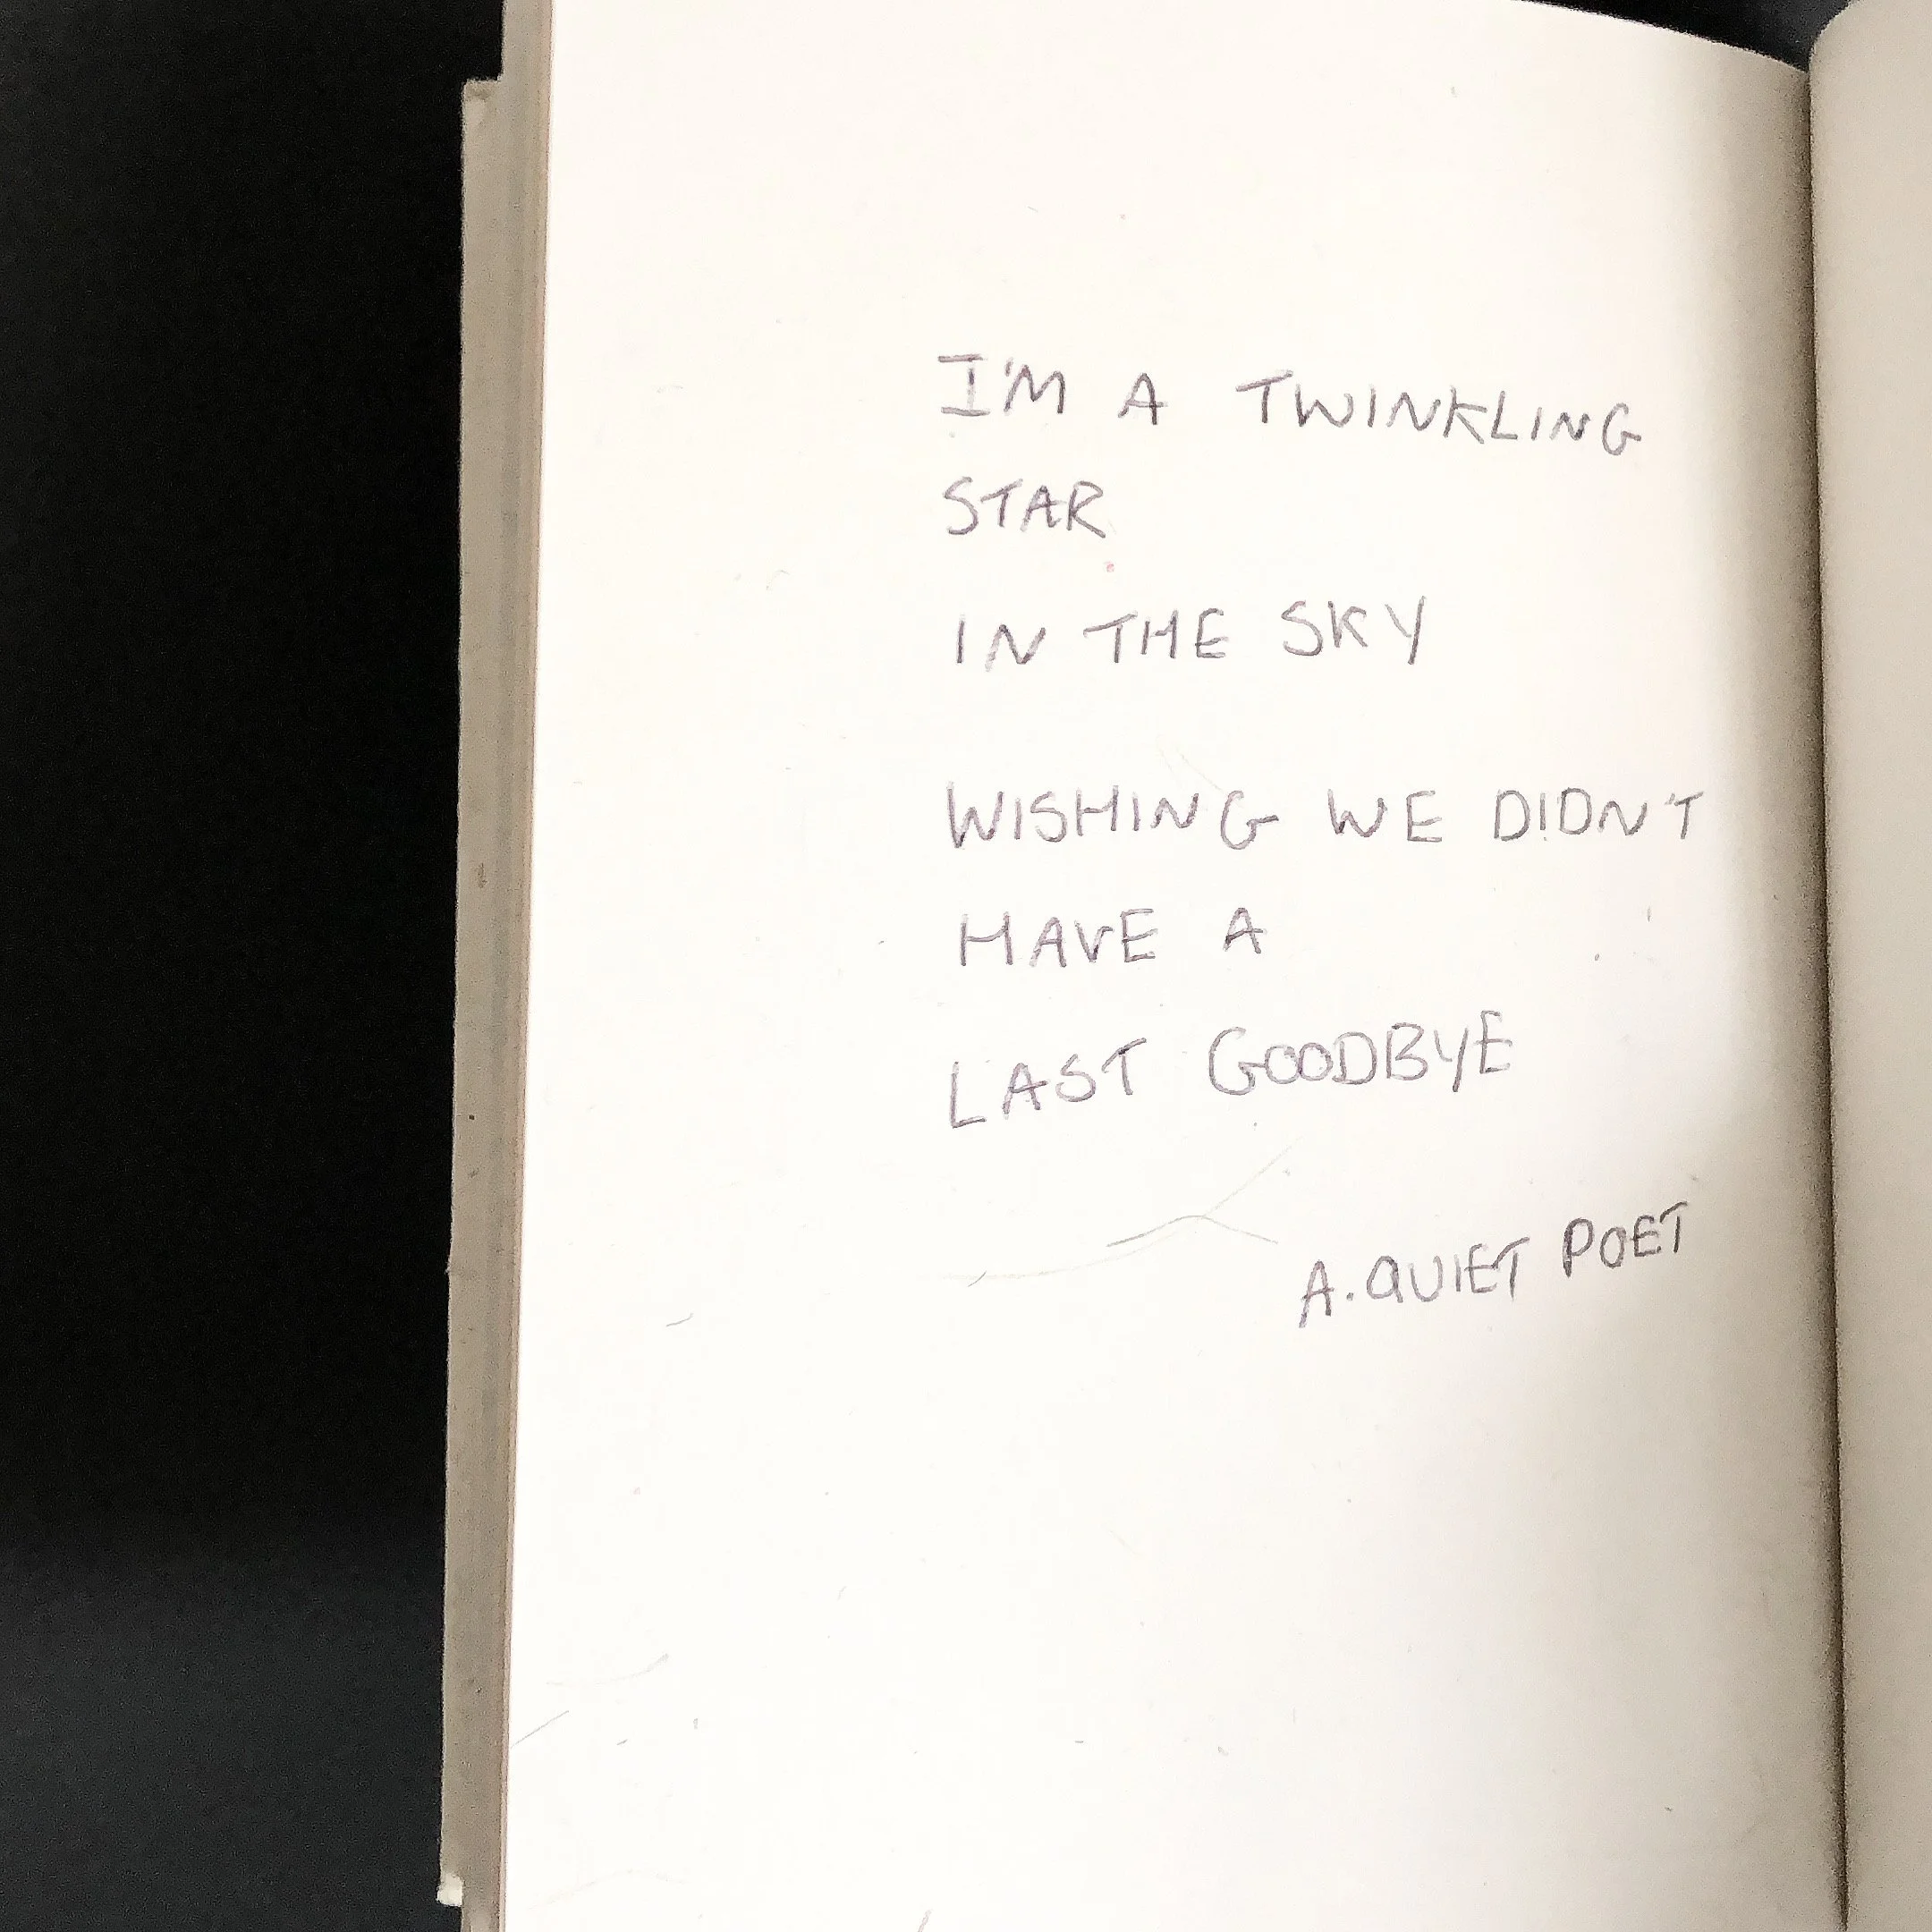 I'M A TWINKLING
STAR
IN THE SKY
WISHING WE DIDN'T
HAVE A
LAST GOODBYE
A. QUIET POET